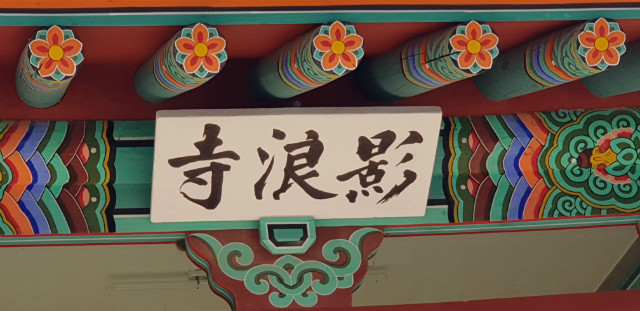 影浪寺